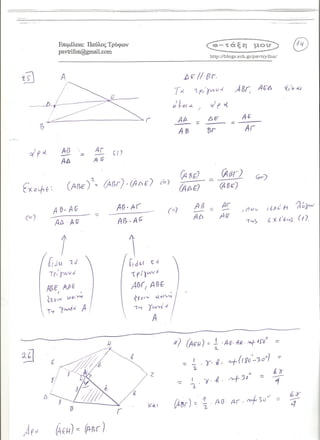 Επιμέλεια: Παύλος Τρύφων
pavtrifon@gmail.com
α-τάξη μου
http://blogs.sch.gr/pavtryfon/
14
25
Α
Δ
Ε
Β
Γ
ΔΕ // ΒΓ.
Τα τρίγωνα ΑΒΓ, ΑΕΔ είναι
όμοια, άρα
ΑΔ/ΑΒ = ΔΕ/ΒΓ = ΑΕ/ΑΓ
άρα ΑΒ/ΑΔ = ΑΓ/ΑΕ (1)
Έχουμε: (ΑΒΕ)² = (ΑΒΓ)·(ΑΔΕ) (=) (ΑΒΕ)/(ΑΔΕ) = (ΑΒΓ)/(ΑΒΕ) (=)
(=) ΑΒ·ΑΕ/ΑΔ·ΑΕ = ΑΒ·ΑΓ/ΑΒ·ΑΕ (=) ΑΒ/ΑΔ = ΑΓ/ΑΕ, που ισχύει λόγω
της σχέσης (1).
διότι τα
τρίγωνα
ΑΒΕ, ΑΔΕ
έχουν κοινή
τη γωνία Α
διότι τα
τρίγωνα
ΑΒΓ, ΑΒΕ
έχουν κοινή
τη γωνία
Α
26
Η
Α
Β
Γ
(ΑΕΗ) = 1/2 · ΑΕ·ΑΗ·ημ150° =
= 1/2 · γ·β·ημ(180°-30°) =
= 1/2 · γ·β·ημ30° = βγ/4
και (ΑΒΓ) = 1/2 · ΑΒ·ΑΓ·ημ30° = βγ/4
Άρα (ΑΕΗ) = (ΑΒΓ).